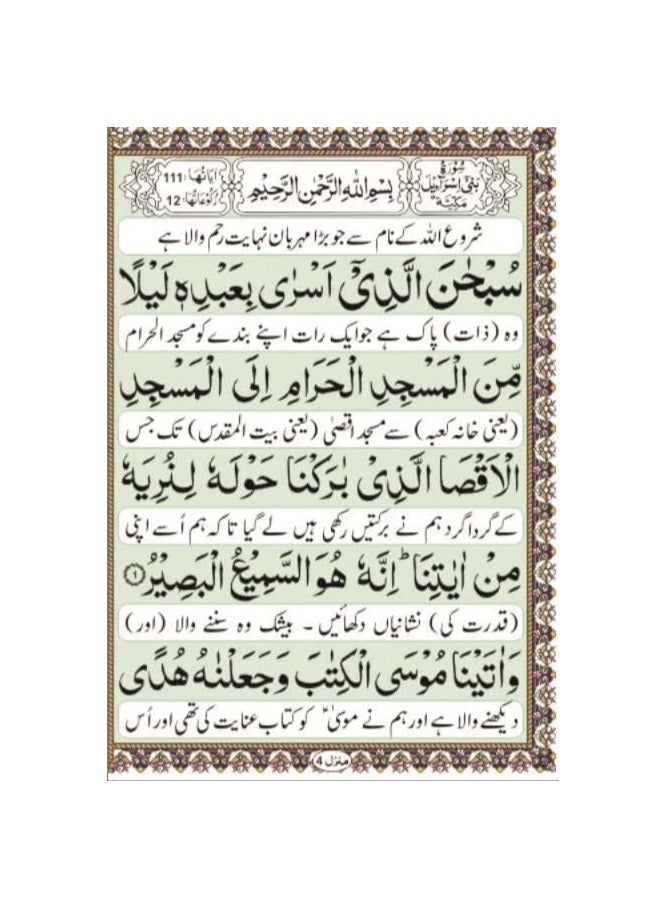 سُوْرَةُ بَنِیْٓ اِسْرَآءِیْلَ مَکِّیَّةٌ
بِسْمِ اللّٰهِ الرَّحْمٰنِ الرَّحِیْمِ
اٰیَاتُهَا: 111
رُکُوْعَاتُهَا: 12
شروع اللہ کے نام سے جو بڑا مہربان نہایت رحم والا ہے
سُبْحٰنَ الَّذِیْۤ اَسْرٰی بِعَبْدِهٖ لَیْلًا
وہ (ذات) پاک ہے جو ایک رات اپنے بندے کو مسجد الحرام
مِّنَ الْمَسْجِدِ الْحَرَامِ اِلَی الْمَسْجِدِ
(یعنی خانہ کعبہ) سے مسجد اقصیٰ (یعنی بیت المقدس) تک جس
الْاَقْصَا الَّذِیْ بٰرَکْنَا حَوْلَهٗ لِنُرِیَهٗ
کے گردا گرد ہم نے برکتیں رکھی ہیں لے گیا تاکہ ہم اُسے اپنی
مِنْ اٰیٰتِنَا ؕ اِنَّهٗ هُوَ السَّمِیْعُ الْبَصِیْرُ ۝۱
(قدرت کی) نشانیاں دکھائیں ۔ بیشک وہ سننے والا (اور)
وَاٰتَیْنَا مُوْسَی الْکِتٰبَ وَجَعَلْنٰهُ هُدًی
دیکھنے والا ہے اور ہم نے موسیٰؑ کو کتاب عنایت کی تھی اور اُس
منزل 4